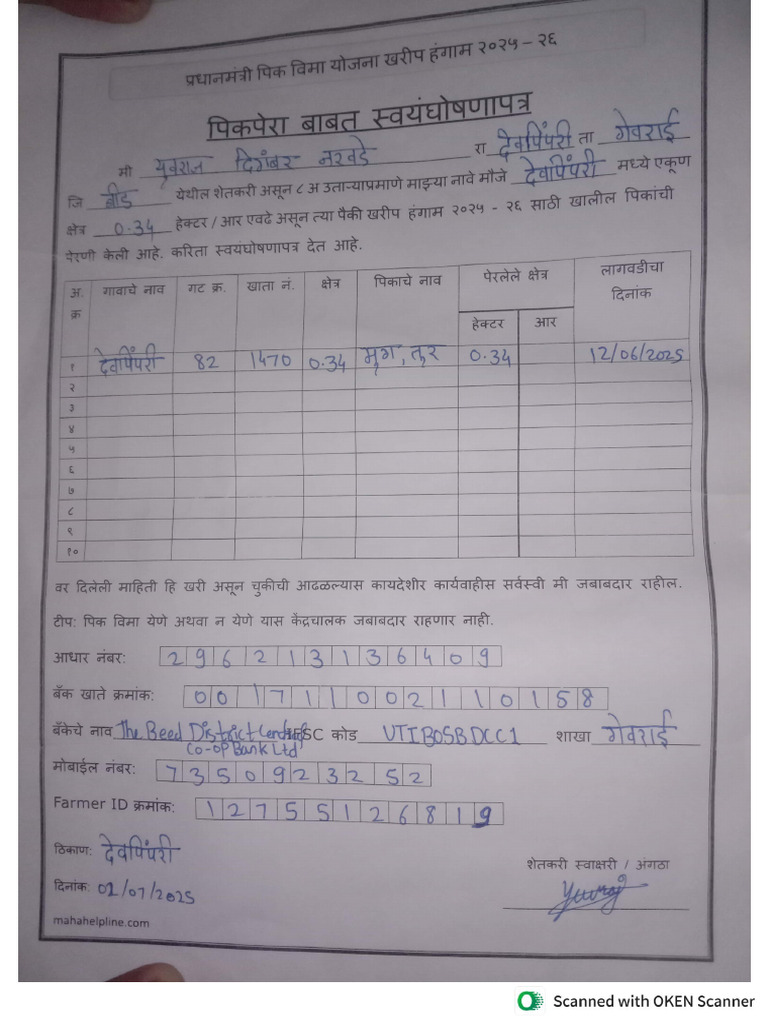 प्रधानमंत्री पिक विमा योजना खरीप हंगाम २०२५ – २६
पिकपेरा बाबत स्वयंघोषणापत्र
मी युवराज दिगंबर नरवडे रा देवपिंपरी ता गेवराई
जि बीड येथील शेतकरी असून ८ अ उताऱ्याप्रमाणे माझ्या नावे मौजे देवपिंपरी मध्ये एकूण
क्षेत्र 0.34 हेक्टर / आर एवढे असून त्या पैकी खरीप हंगाम २०२५ - २६ साठी खालील पिकांची
पेरणी केली आहे. करिता स्वयंघोषणापत्र देत आहे.
अ. क्र गावाचे नाव गट क्र. खाता नं. क्षेत्र पिकाचे नाव पेरलेले क्षेत्र लागवडीचा दिनांक
हेक्टर आर
१ देवपिंपरी 82 1470 0.34 मुग, तुर 0.34 12/06/2025
२
३
४
५
६
७
८
९
१०
वर दिलेली माहिती हि खरी असून चुकीची आढळल्यास कायदेशीर कार्यवाहीस सर्वस्वी मी जबाबदार राहील.
टीप: पिक विमा येणे अथवा न येणे यास केंद्रचालक जबाबदार राहणार नाही.
आधार नंबर: 296213136409
बँक खाते क्रमांक: 001711002110158
बँकेचे नाव The Beed District Central IFSC कोड UTIB0SBDCC1 शाखा गेवराई
Co-op Bank Ltd
मोबाईल नंबर: 7350923252
Farmer ID क्रमांक: 12755126819
ठिकाण: देवपिंपरी
शेतकरी स्वाक्षरी / अंगठा
दिनांक: 02/07/2025
mahahelpline.com
Scanned with OKEN Scanner